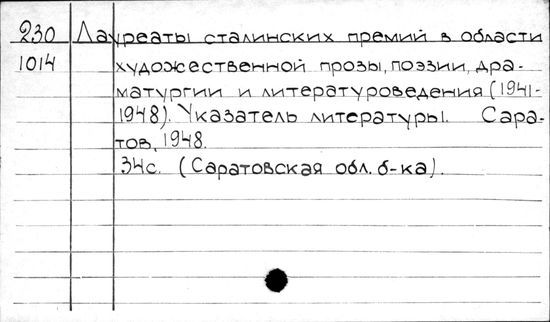 230 Лауреаты сталинских премий в области
1014 художественной прозы, поэзии, дра-
матургии и литературоведения (1941-
1948). Указатель литературы. Сара-
тов, 1948.
34с. (Саратовская обл. б-ка).